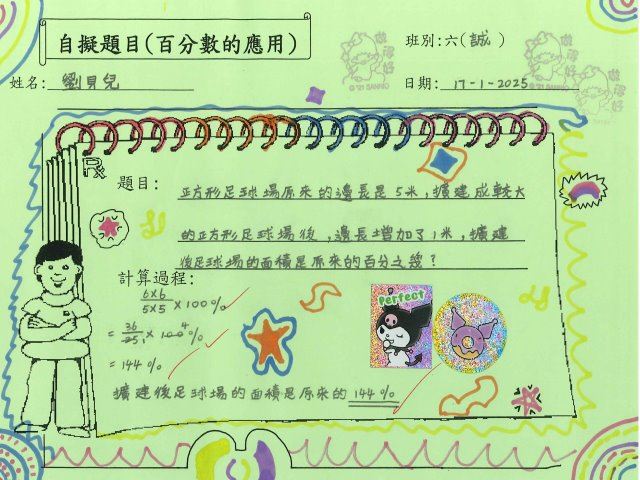 自擬題目(百分數的應用)
班別:六(誠)
姓名:劉貝兒
日期:17-1-2025
做得好
©'21 SANRIO
做得好
©'21 SANRIO
做得好
題目:正方形足球場原來的邊長是5米,擴建成較大
的正方形足球場後,邊長增加了1米,擴建
後足球場的面積是原來的百分之幾?
計算過程:
6×6/5×5 ×100%
= 36/25₁ ×100⁴%
= 144%
擴建後足球場的面積是原來的144%
Perfect